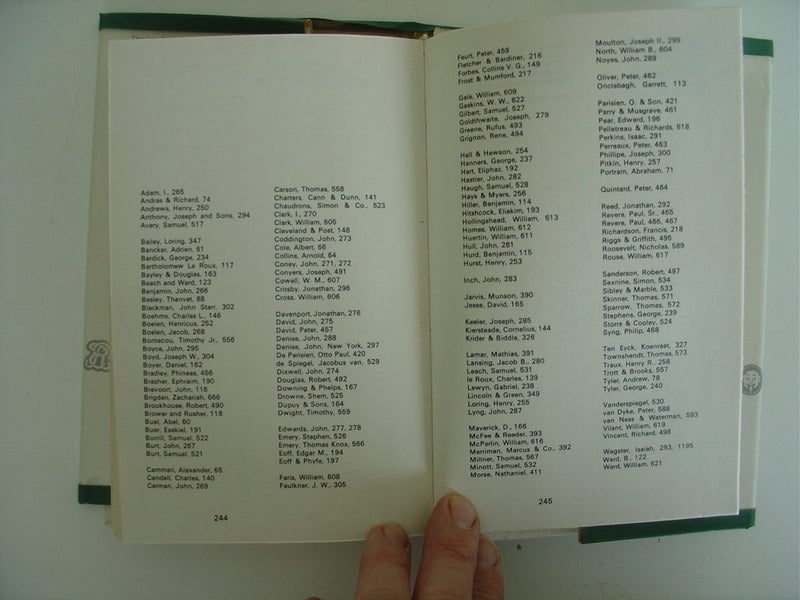 Adam, I., 265
Andras & Richard, 74
Andrews, Henry, 250
Anthony, Joseph and Sons, 294
Avery, Samuel, 517
Bailey, Loring, 347
Bancker, Adrien, 61
Bardick, George, 234
Bartholomew Le Roux, 117
Bayley & Douglas, 163
Beach and Ward, 123
Benjamin, John, 266
Besley, Thanvet, 88
Blackman, John Starr, 302
Boehme, Charles L., 146
Boelen, Henricus, 252
Boelen, Jacob, 268
Bontecou, Timothy Jr., 556
Boyce, John, 295
Boyd, Joseph W., 304
Boyer, Daniel, 162
Bradley, Phineas, 456
Brasher, Ephraim, 190
Brevoort, John, 116
Brigden, Zachariah, 666
Brookhouse, Robert, 490
Brower and Rusher, 118
Buel, Abel, 60
Buer, Esekiel, 191
Burrill, Samuel, 522
Burt, John, 267
Burt, Samuel, 521
Camman, Alexander, 65
Candell, Charles, 140
Carman, John, 269
Carson, Thomas, 558
Charters, Cann & Dunn, 141
Chaudrons, Simon & Co., 523
Clark, I., 270
Clark, William, 605
Cleveland & Post, 148
Coddington, John, 273
Cole, Albert, 66
Collins, Arnold, 64
Coney, John, 271, 272
Conyers, Joseph, 491
Cowell, W. M., 607
Crosby, Jonathan, 296
Cross, William, 606
Davenport, Jonathan, 276
David, John, 275
David, Peter, 457
Denise, John, 288
Denise, John, New York, 297
De Parisien, Otto Paul, 420
de Spiegel, Jacobus van, 529
Dixwell, John, 274
Douglas, Robert, 492
Downing & Phelps, 167
Drowne, Shem, 525
Dupuy & Sons, 164
Dwight, Timothy, 559
Edwards, John, 277, 278
Emery, Stephen, 526
Emery, Thomas Knox, 566
Eoff, Edgar M., 194
Eoff & Phyfe, 197
Faris, William, 608
Faulkner, J. W., 305
244
Feurt, Peter, 459
Fletcher & Bardiner, 216
Forbes, Collins V. G., 149
Frost & Mumford, 217
Gale, William, 609
Gaskins, W. W., 622
Gilbert, Samuel, 527
Goldthwaite, Joseph, 279
Greene, Rufus, 493
Grignon, Rene, 494
Hall & Hewson, 254
Hanners, George, 237
Hart, Eliphaz, 192
Hastier, John, 282
Haugh, Samuel, 528
Hays & Myers, 256
Hiller, Benjamin, 114
Hitshcock, Eliakim, 193
Hollingshead, William, 613
Homes, William, 612
Huertin, William, 611
Hull, John, 281
Hurd, Benjamin, 115
Hurst, Henry, 253
Inch, John, 283
Jarvis, Munson, 390
Jesse, David, 165
Keeler, Joseph, 285
Kiersteade, Cornelius, 144
Krider & Biddle, 326
Lamar, Mathias, 391
Lansing, Jacob B., 280
Leach, Samuel, 531
le Roux, Charles, 139
Lewyn, Gabriel, 238
Lincoln & Green, 349
Loring, Henry, 255
Lyng, John, 287
Maverick, D., 166
McFee & Reeder, 393
McParlin, William, 616
Merriman, Marcus & Co., 392
Millner, Thomas, 567
Minott, Samuel, 532
Morse, Nathaniel, 411
Moulton, Joseph II., 299
North, William B., 604
Noyes, John, 289
Oliver, Peter, 462
Onclebagh, Garrett, 113
Parisien, O. & Son, 421
Parry & Musgrave, 461
Pear, Edward, 196
Pelletreau & Richards, 618
Perkins, Isaac, 291
Perreaux, Peter, 463
Phillipe, Joseph, 300
Pitkin, Henry, 257
Portram, Abraham, 71
Quintard, Peter, 464
Reed, Jonathan, 292
Revere, Paul, Sr., 465
Revere, Paul, 466, 467
Richardson, Francis, 218
Riggs & Griffith, 495
Roosevelt, Nicholas, 589
Rouse, William, 617
Sanderson, Robert, 497
Sexnine, Simon, 534
Sibley & Marble, 533
Skinner, Thomas, 571
Sparrow, Thomas, 572
Stephens, George, 239
Storrs & Cooley, 524
Syng, Philip, 468
Ten Eyck, Koenraet, 327
Townshendt, Thomas, 573
Traux, Henry R., 258
Trott & Brooks, 557
Tyler, Andrew, 78
Tyler, George, 240
Vanderspiegel, 530
van Dyke, Peter, 588
van Ness & Waterman, 593
Vilant, William, 619
Vincent, Richard, 498
Wagster, Isaiah, 293, 1195
Ward, B., 122
Ward, William, 621
245